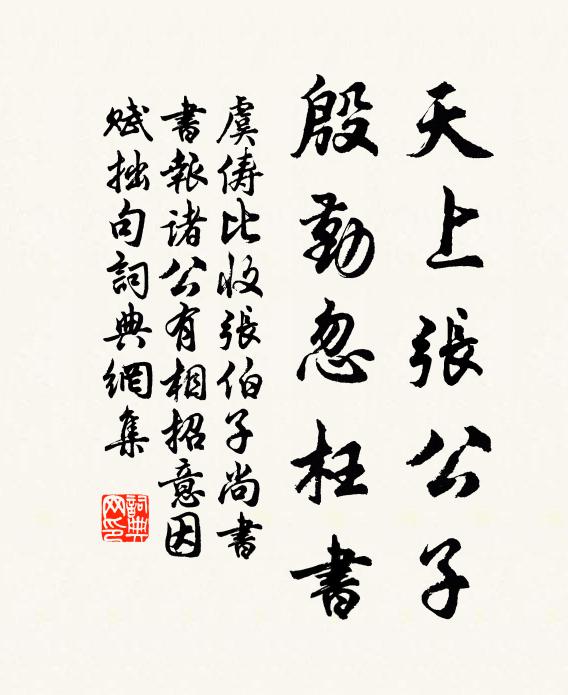 天上張公子
殷勤忽枉書
虞儔比收張伯子尚書
書報諸公有相招意因
賦拙句詞典網集
詞典
网印